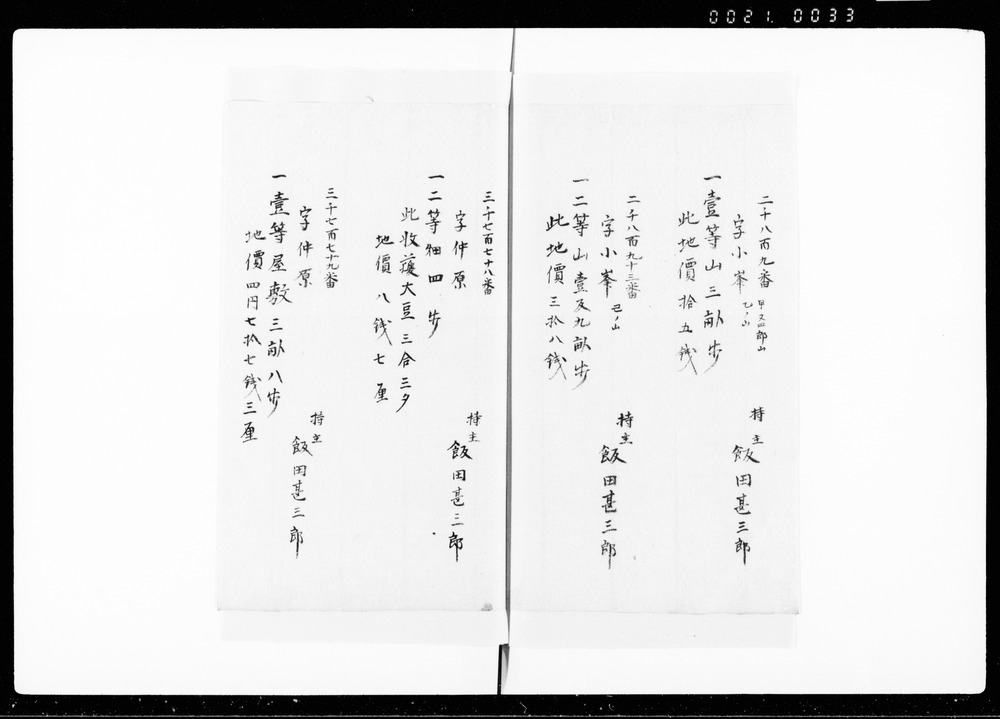 0021. 0033
二千八百九番
字小峯 甲 又四郎山 乙ノ山
一壹等山三畝歩
此地價拾五銭
持主 飯田甚三郎
二千八百九十三番
字小峯 己ノ山
一二等山壹反九畝歩
此地價三拾八銭
持主 飯田甚三郎
三千七百七十八番
字仲原
一二等畑四歩
此收穫大豆三合三夕
地價八銭七厘
持主 飯田甚三郎
三千七百七十九番
字仲原
一壹等屋敷三畝八歩
地價四円七拾七銭三厘
持主 飯田甚三郎